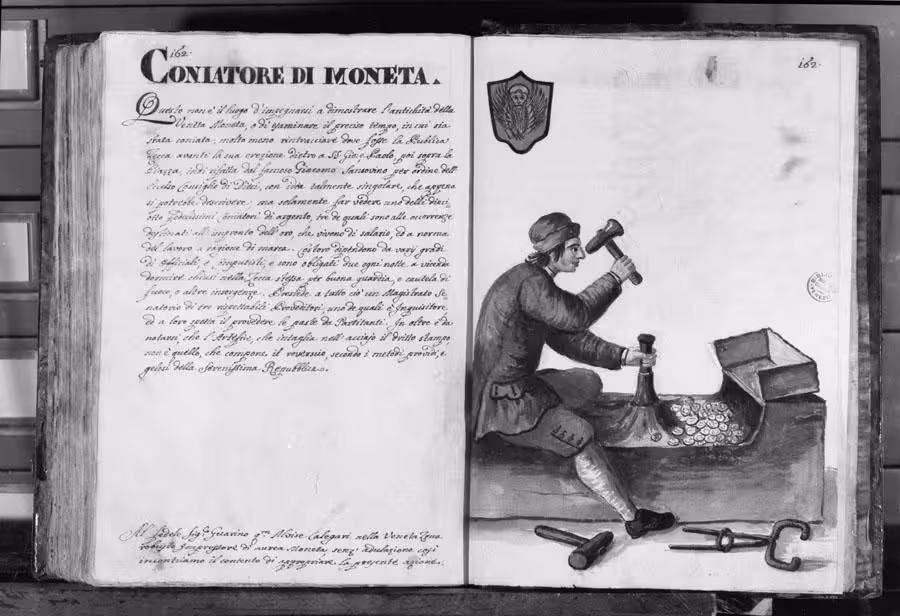 162.
CONIATORE DI MONETA.
Questo non è il luogo d'impegnarsi a dimostrare l'antichità della
Veneta Moneta, o di esaminare il preciso tempo, in cui sia
stata coniata; molto meno rintracciare dove fosse la Publica
Zecca avanti la sua erezione dietro a SS. Gio: e Paolo, poi sopra la
Piazza, indi rifatta dal famoso Giacomo Sansovino per ordine dell'
Eccelso Consiglio di Dieci, con idea talmente singolare, che appena
si potrebbe descrivere; ma solamente far vedere uno delli dieci
otto Fedelissimi, coniatori di argento, tre de quali sono alle occorrenze
destinati all'impronto dell'oro, che vivono di salario, ed a norma
del lavoro a ragione di marca. Costoro dipendono da varj gradi
di Officiali, e Computisti, e sono obligati due ogni notte a vicenda
dormire chiusi nella Zecca stessa per buona guardia, e cautela di
fuoco, o altre insorgenze. Presiede a tutto ciò un Magistrato Se
natorio di tre rispettabili Proveditori, uno de quali è Inquisitore,
ed a loro spetta il provedere le paste da Partitanti. In oltre è da
notarsi, che l'Artefice, che intaglia nell'acciajo il dritto stampo,
non è quello, che compone il roverscio, secondo i metodi providi, e
gelosi della Serenissima Repubblica.
Al Fedele Sig.r Guarino q.m Aloise Calegari nella Veneta Zecca
Impressore di aurea Moneta senz' adulazione così
incontriamo il contento di appropriare la presente azione.
162.